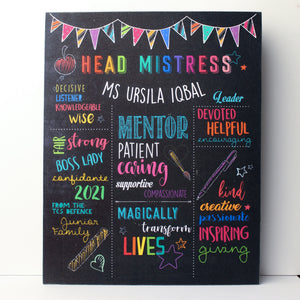 HEAD MISTRESS
MS URSILA IQBAL
DECISIVE
LISTENER
KNOWLEDGEABLE
wise
FAIR
strong
BOSS LADY
confidante
2021
FROM THE
TCS DEFENCE
Junior
Family
MENTOR
PATIENT
caring
supportive
COMPASSIONATE
MAGICALLY
transform
LIVES
Leader
DEVOTED
HELPFUL
encouraging
kind
creative
passionate
INSPIRING
giving